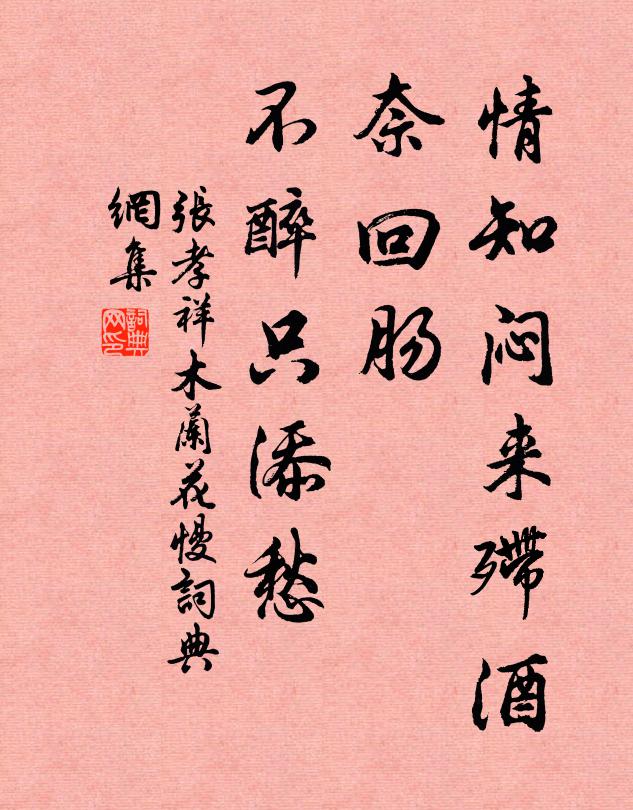 情知闷来殢酒
奈回肠
不醉只添愁
張孝祥木蘭花慢詞典
網集
詞典網印